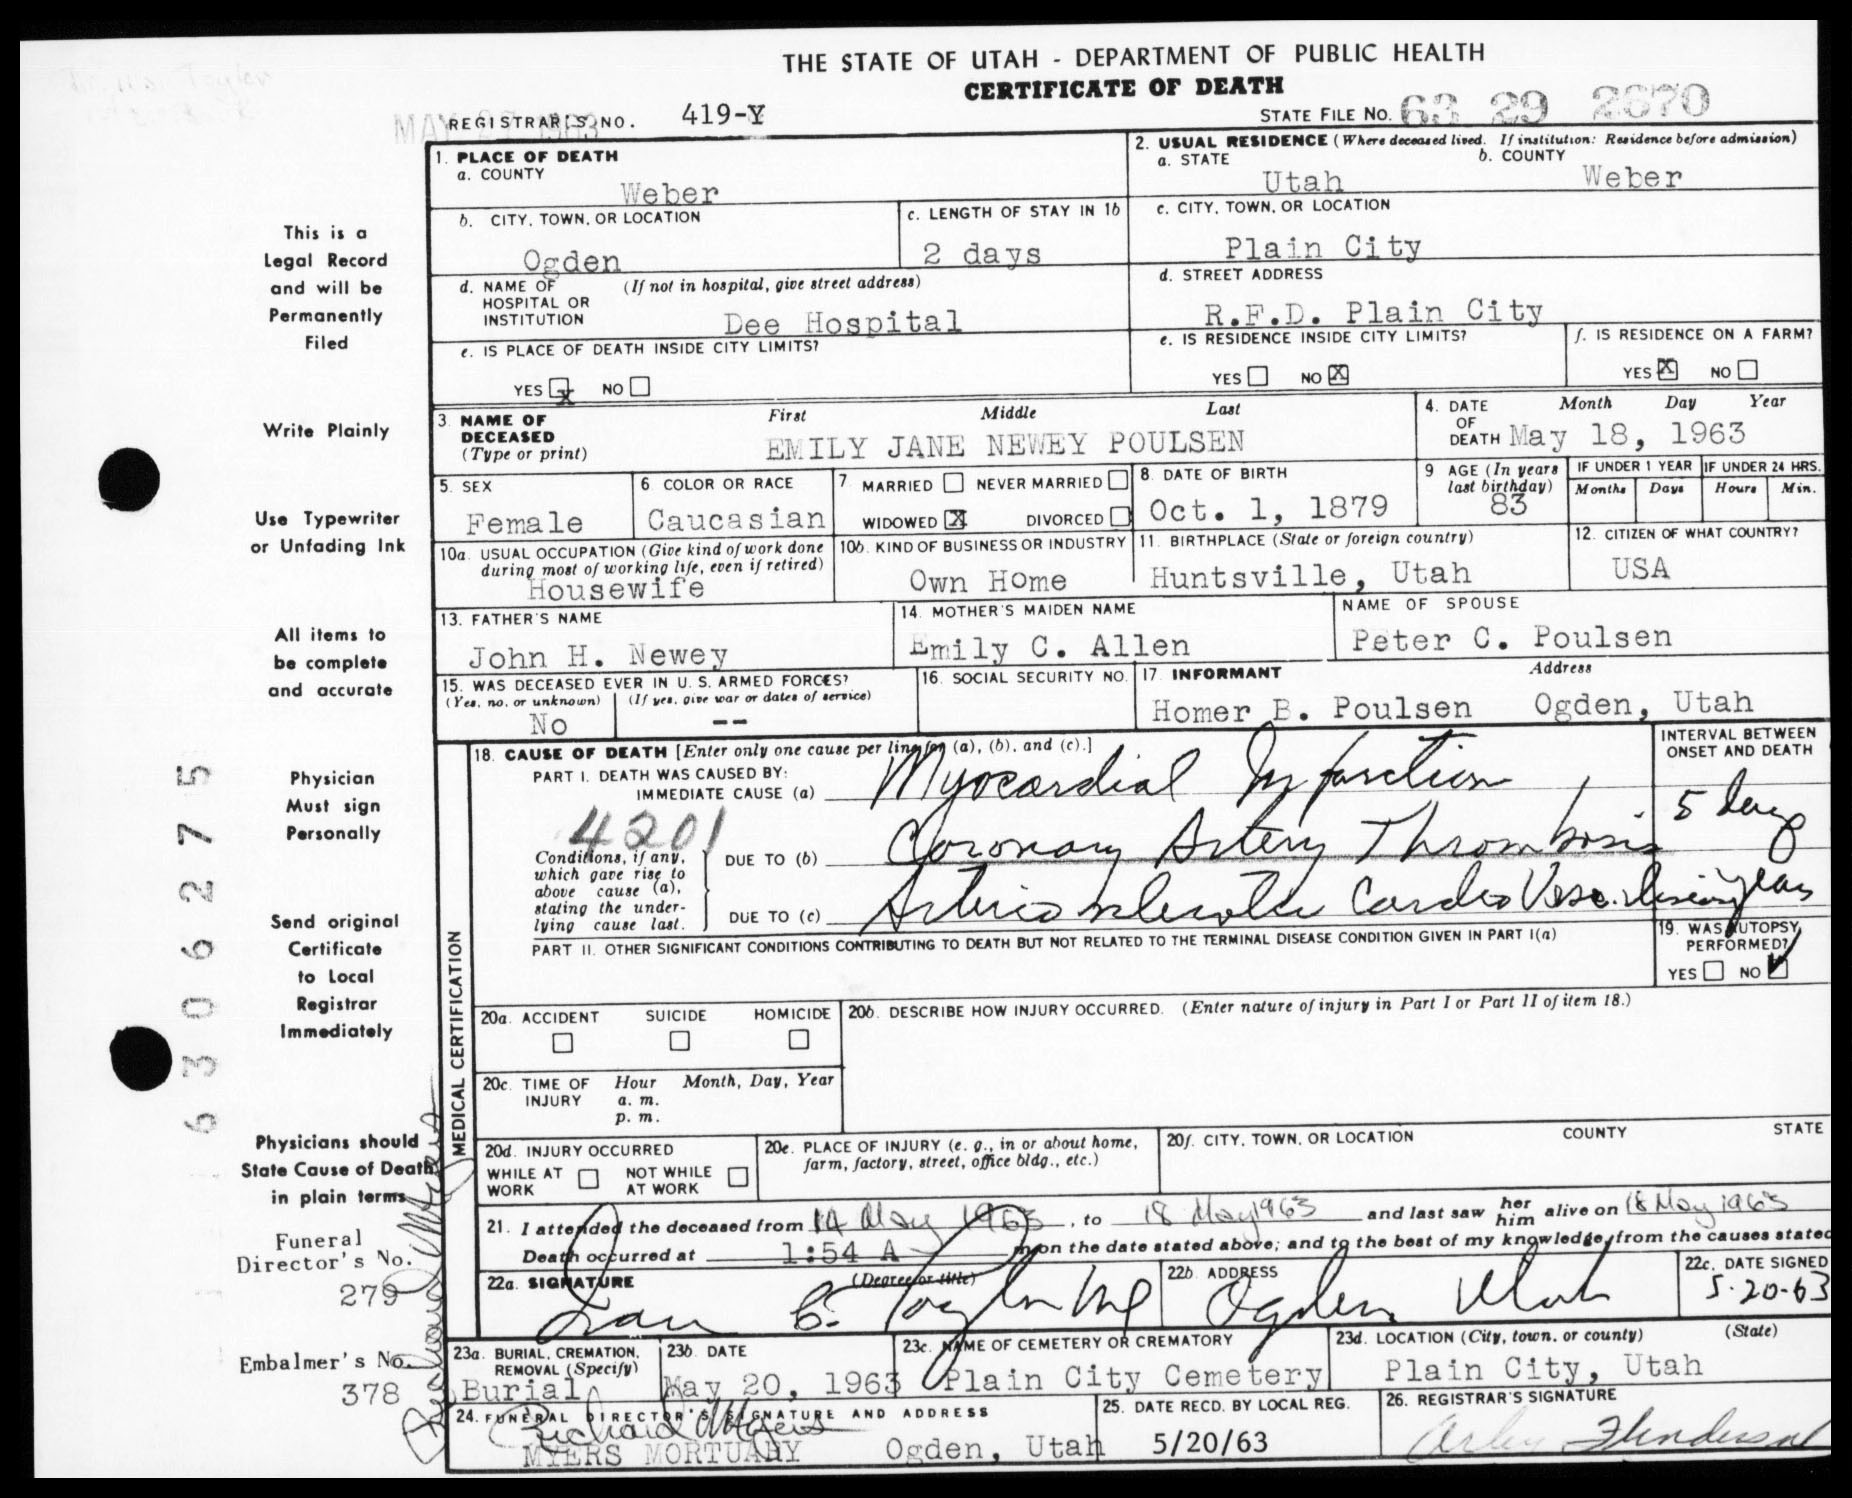 THE STATE OF UTAH - DEPARTMENT OF PUBLIC HEALTH
CERTIFICATE OF DEATH
MAY 27 1963
REGISTRAR'S NO. 419-Y
STATE FILE NO. 63 29 2670
1. PLACE OF DEATH
a. COUNTY
Weber
2. USUAL RESIDENCE (Where deceased lived. If institution: Residence before admission)
a. STATE b. COUNTY
Utah Weber
b. CITY, TOWN, OR LOCATION
Ogden
c. LENGTH OF STAY IN 1b
2 days
c. CITY, TOWN, OR LOCATION
Plain City
d. NAME OF (If not in hospital, give street address)
HOSPITAL OR
INSTITUTION
Dee Hospital
d. STREET ADDRESS
R.F.D. Plain City
e. IS PLACE OF DEATH INSIDE CITY LIMITS?
YES X NO
e. IS RESIDENCE INSIDE CITY LIMITS?
YES NO X
f. IS RESIDENCE ON A FARM?
YES X NO
3. NAME OF
DECEASED
(Type or print)
First Middle Last
EMILY JANE NEWEY POULSEN
4. DATE Month Day Year
OF
DEATH May 18, 1963
5. SEX
Female
6 COLOR OR RACE
Caucasian
7 MARRIED NEVER MARRIED
WIDOWED X DIVORCED
8. DATE OF BIRTH
Oct. 1, 1879
9 AGE (In years
last birthday)
83
IF UNDER 1 YEAR IF UNDER 24 HRS.
Months Days Hours Min.
10a. USUAL OCCUPATION (Give kind of work done
during most of working life, even if retired)
Housewife
10b. KIND OF BUSINESS OR INDUSTRY
Own Home
11. BIRTHPLACE (State or foreign country)
Huntsville, Utah
12. CITIZEN OF WHAT COUNTRY?
USA
13. FATHER'S NAME
John H. Newey
14. MOTHER'S MAIDEN NAME
Emily C. Allen
NAME OF SPOUSE
Peter C. Poulsen
15. WAS DECEASED EVER IN U. S. ARMED FORCES?
(Yes, no, or unknown) (If yes, give war or dates of service)
No --
16. SOCIAL SECURITY NO.
17. INFORMANT Address
Homer B. Poulsen Ogden, Utah
MEDICAL CERTIFICATION
18. CAUSE OF DEATH [Enter only one cause per line for (a), (b), and (c).]
INTERVAL BETWEEN
ONSET AND DEATH
PART I. DEATH WAS CAUSED BY:
IMMEDIATE CAUSE (a) Myocardial Infarction
4201
Conditions, if any,
which gave rise to
above cause (a),
stating the under-
lying cause last.
DUE TO (b) Coronary Artery Thrombosis 5 days
DUE TO (c) Arteriosclerotic Cardio Vasc. disease years
PART II. OTHER SIGNIFICANT CONDITIONS CONTRIBUTING TO DEATH BUT NOT RELATED TO THE TERMINAL DISEASE CONDITION GIVEN IN PART I(a)
19. WAS AUTOPSY
PERFORMED?
YES NO
20a. ACCIDENT SUICIDE HOMICIDE
20b. DESCRIBE HOW INJURY OCCURRED. (Enter nature of injury in Part I or Part II of item 18.)
20c. TIME OF Hour Month, Day, Year
INJURY a. m.
p. m.
20d. INJURY OCCURRED
WHILE AT WORK NOT WHILE AT WORK
20e. PLACE OF INJURY (e. g., in or about home,
farm, factory, street, office bldg., etc.)
20f. CITY, TOWN, OR LOCATION COUNTY STATE
21. I attended the deceased from 14 May 1963, to 18 May 1963 and last saw her him alive on 18 May 1963
Death occurred at 1:54 A m on the date stated above; and to the best of my knowledge, from the causes stated
22a. SIGNATURE (Degree or title)
C. Taylor MD
22b. ADDRESS
Ogden Utah
22c. DATE SIGNED
5-20-63
23a. BURIAL, CREMATION,
REMOVAL (Specify)
Burial
23b. DATE
May 20, 1963
23c. NAME OF CEMETERY OR CREMATORY
Plain City Cemetery
23d. LOCATION (City, town, or county) (State)
Plain City, Utah
24. FUNERAL DIRECTOR'S SIGNATURE AND ADDRESS
Richard Myers
MYERS MORTUARY Ogden, Utah
25. DATE RECD. BY LOCAL REG.
5/20/63
26. REGISTRAR'S SIGNATURE
This is a
Legal Record
and will be
Permanently
Filed
Write Plainly
Use Typewriter
or Unfading Ink
All items to
be complete
and accurate
Physician
Must sign
Personally
Send original
Certificate
to Local
Registrar
Immediately
Physicians should
State Cause of Death
in plain terms
Funeral
Director's No.
279
Embalmer's No.
378
6306275
Richard Myers